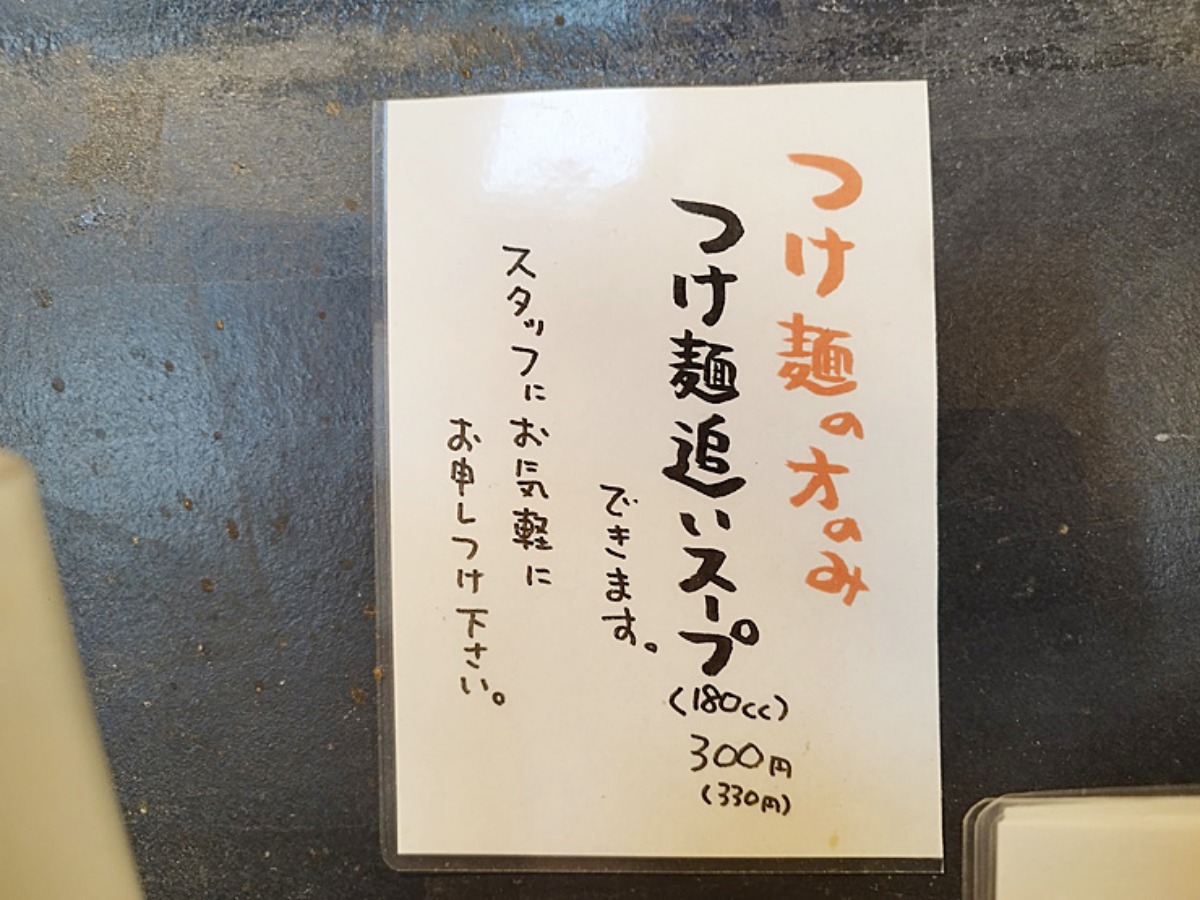 つけ麺の方のみ
つけ麺追いスープ
(180cc)
300円
(330円)
できます。
スタッフにお気軽に
お申しつけ下さい。